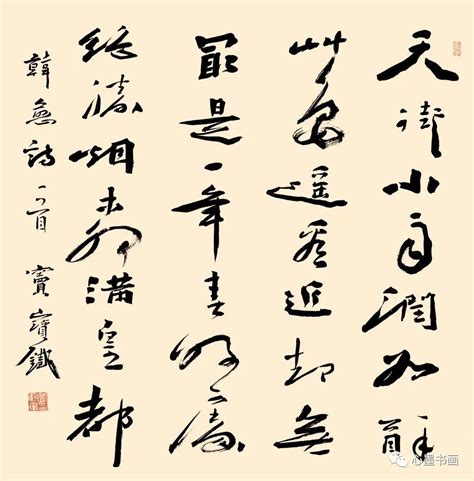 天街小雨潤如酥
艸色遥看近却無
最是一年春好處
絶勝烟柳满皇都
韓愈詩一首 竇寶鐵
心墨书画